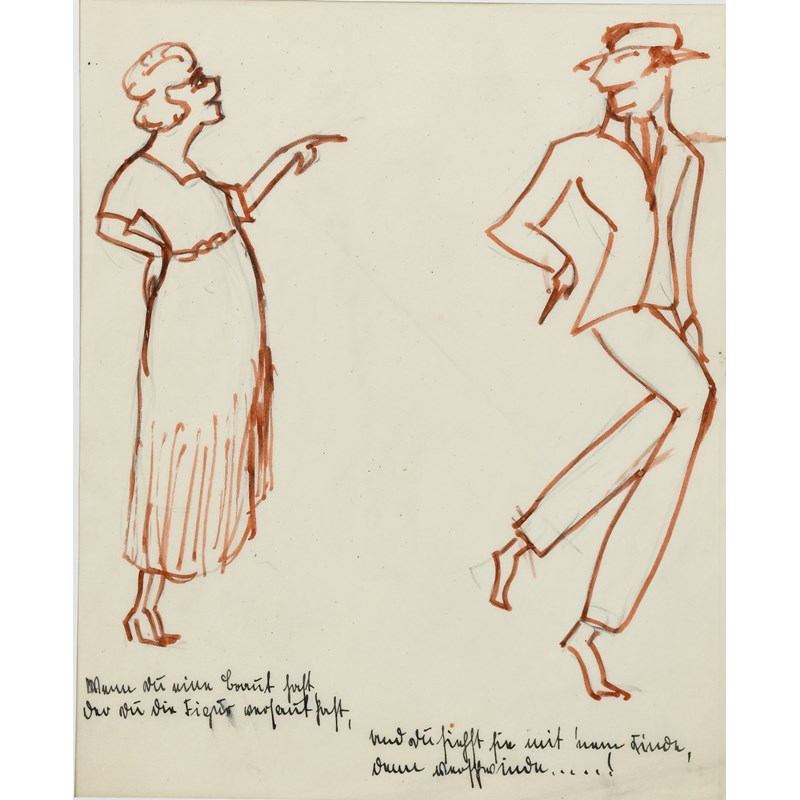 Wenn du eine Braut hast
der du die Figur versaut hast,
und du siehst sie mit 'nem Kinde,
dann verschwinde.....!